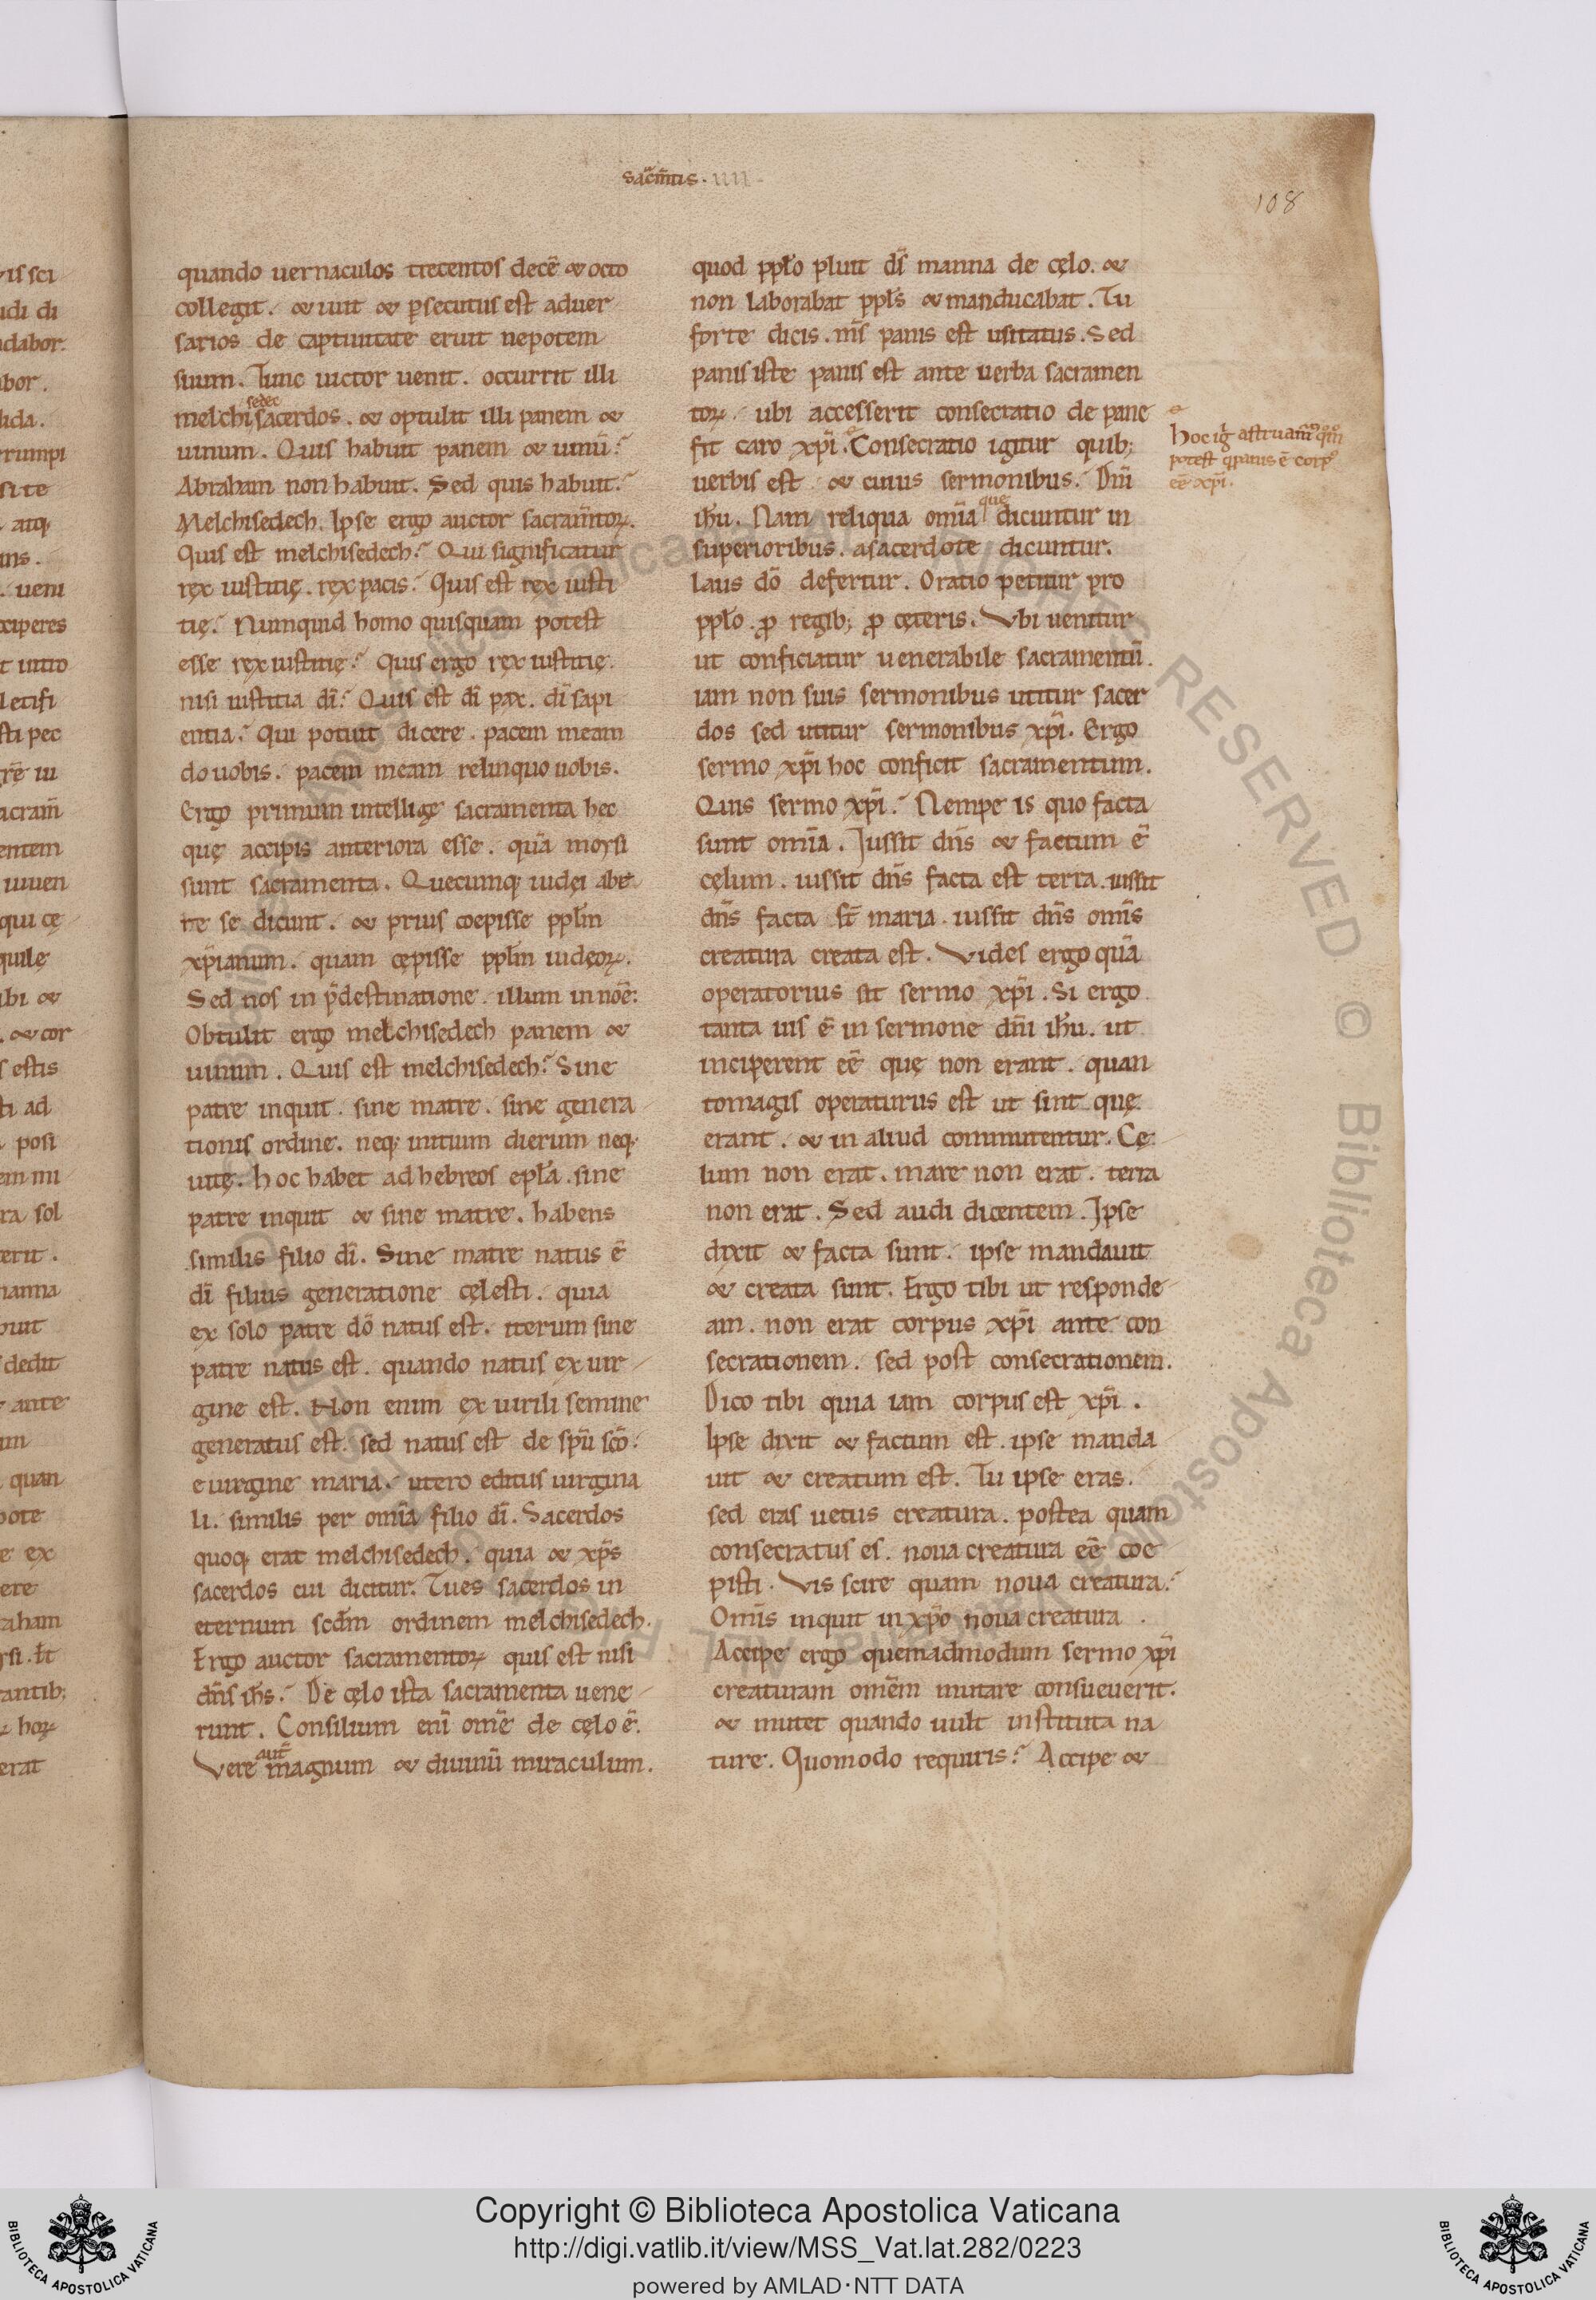 sac̄m̄tis · IIII ·
108
is sci
udi di
ndabor.
abor.
lida.
rrumpi
site
atq;
ans.
. ueni
xciperes
t uitio
letifi
sti pec
grē iu
acram̄
entem
iuuen
qui cę
quilę
ibi &
. & cor
s estis
ti ad
posi
em mi
ra sol
erit.
manna
buit
dedit
ante
um
quan
pote
e ex
ere
raham
rsi. ł t
rantib;
hoꝝ
erat
quando uernaculos trecentos decē & octo
collegit. & iuit & ꝑsecutus est aduer
sarios de captiuitate eruit nepotem
suum. Tunc uictor uenit. occurrit illi
sedec
melchi sacerdos. & optulit illi panem &
uinum. Quis habuit panem & uinū?
Abraham non habuit. Sed quis habuit?
Melchisedech. Ipse ergo auctor sacram̄toꝝ.
Quis est melchisedech? Qui significatur
rex iustitię. rex pacis? Quis est rex iusti
tię? Numquid homo quisquam potest
esse rex iustitię? Quis ergo rex iustitię.
nisi iustitia dī? Quis est dī pax. dī sapi
entia? Qui potuit dicere. pacem meam
do uobis. pacem meam relinquo uobis.
Ergo primum intellige sacramenta hec
quę accipis anteriora esse. quā moysi
sunt sacramenta. Quecumq; iudei abe
re se dicunt. & prius coepisse pplm̄
xp̄ianum. quam cępisse pplm̄ iudęoꝝ.
Sed nos in p̄destinatione. illum in noē:
Obtulit ergo melchisedech panem &
uinum. Quis est melchisedech? Sine
patre inquit. sine matre. sine genera
tionis ordine. neq; initium dierum neq;
uitę. hoc habet ad hebreos epłā. sine
patre inquit & sine matre. habens
similis filio dī. Sine matre natus ē
dī filius generatione cęlesti. quia
ex solo patre dō natus est. iterum sine
patre natus est. quando natus ex uir
gine est. Non enim ex uirili semine
generatus est. sed natus est de spū scō.
e uirgine maria. utero editus uirgina
li. similis per omīa filio dī. Sacerdos
quoq; erat melchisedech. quia & xp̄s
sacerdos cui dicitur. Tu es sacerdos in
eternum scdm̄ ordinem melchisedech.
Ergo auctor sacramentoꝝ quis est nisi
dn̄s ih̄s? De cęlo ista sacramenta uene
runt. Consilium enī omē de cęlo ē.
aut̄
Vere magnum & diuinū miraculum.
quod ppło pluit dī manna de cęlo. &
non laborabat pplš & manducabat. Tu
forte dicis. m̄s panis est usitatus. Sed
panis iste panis est ante uerba sacramen
toꝝ. ubi accesserit consecratio de pane
fit caro xp̄i. Consecratio igitur quib;
uerbis est & cuius sermonibus? Dn̄i
que
ih̄u. Nam reliqua omīa dicuntur in
superioribus. a sacerdote dicuntur.
laus dō defertur. Oratio petitur pro
ppło. ꝓ regib; ꝓ cęteris. Vbi uenitur
ut conficiatur uenerabile sacramentū.
iam non suis sermonibus utitur sacer
dos sed utitur sermonibus xp̄i. Ergo
sermo xp̄i hoc conficit sacramentum.
Quis sermo xp̄i? Nempe is quo facta
sunt omīa. Iussit dn̄s & factum ē
cęlum. iussit dn̄s facta est terra. iussit
dn̄s facta st̄ maria. iussit dn̄s omīs
creatura creata est. Vides ergo quā
operatorius sit sermo xp̄i. Si ergo
tanta uis ē in sermone dn̄i ih̄u. ut
inciperent eē quę non erant. quan
tomagis operaturus est ut sint quę
erant. & in aliud commutentur. Cę
lum non erat. mare non erat. terra
non erat. Sed audi dicentem. Ipse
dixit & facta sunt. ipse mandauit
& creata sunt. Ergo tibi ut responde
am. non erat corpus xp̄i ante con
secrationem. sed post consecrationem.
Dico tibi quia iam corpus est xp̄i.
Ipse dixit & factum est. ipse manda
uit & creatum est. Tu ipse eras.
sed eras uetus creatura. postea quam
consecratus es. noua creatura eē coe
pisti. Vis scire quam noua creatura?
Omīs inquit in xp̄o noua creatura.
Accipe ergo quemadmodum sermo xp̄i
creaturam omēm mutare consueuerit.
& mutet quando uult instituta na
ture. Quomodo requiris? Accipe &
hoc ig̅ astruam̄ꝰ qm̊
potest q̇ panis ē corpꝰ
eē xp̄i.
Copyright © Biblioteca Apostolica Vaticana
http://digi.vatlib.it/view/MSS_Vat.lat.282/0223
powered by AMLAD·NTT DATA
BIBLIOTECA APOSTOLICA VATICANA
BIBLIOTECA APOSTOLICA VATICANA